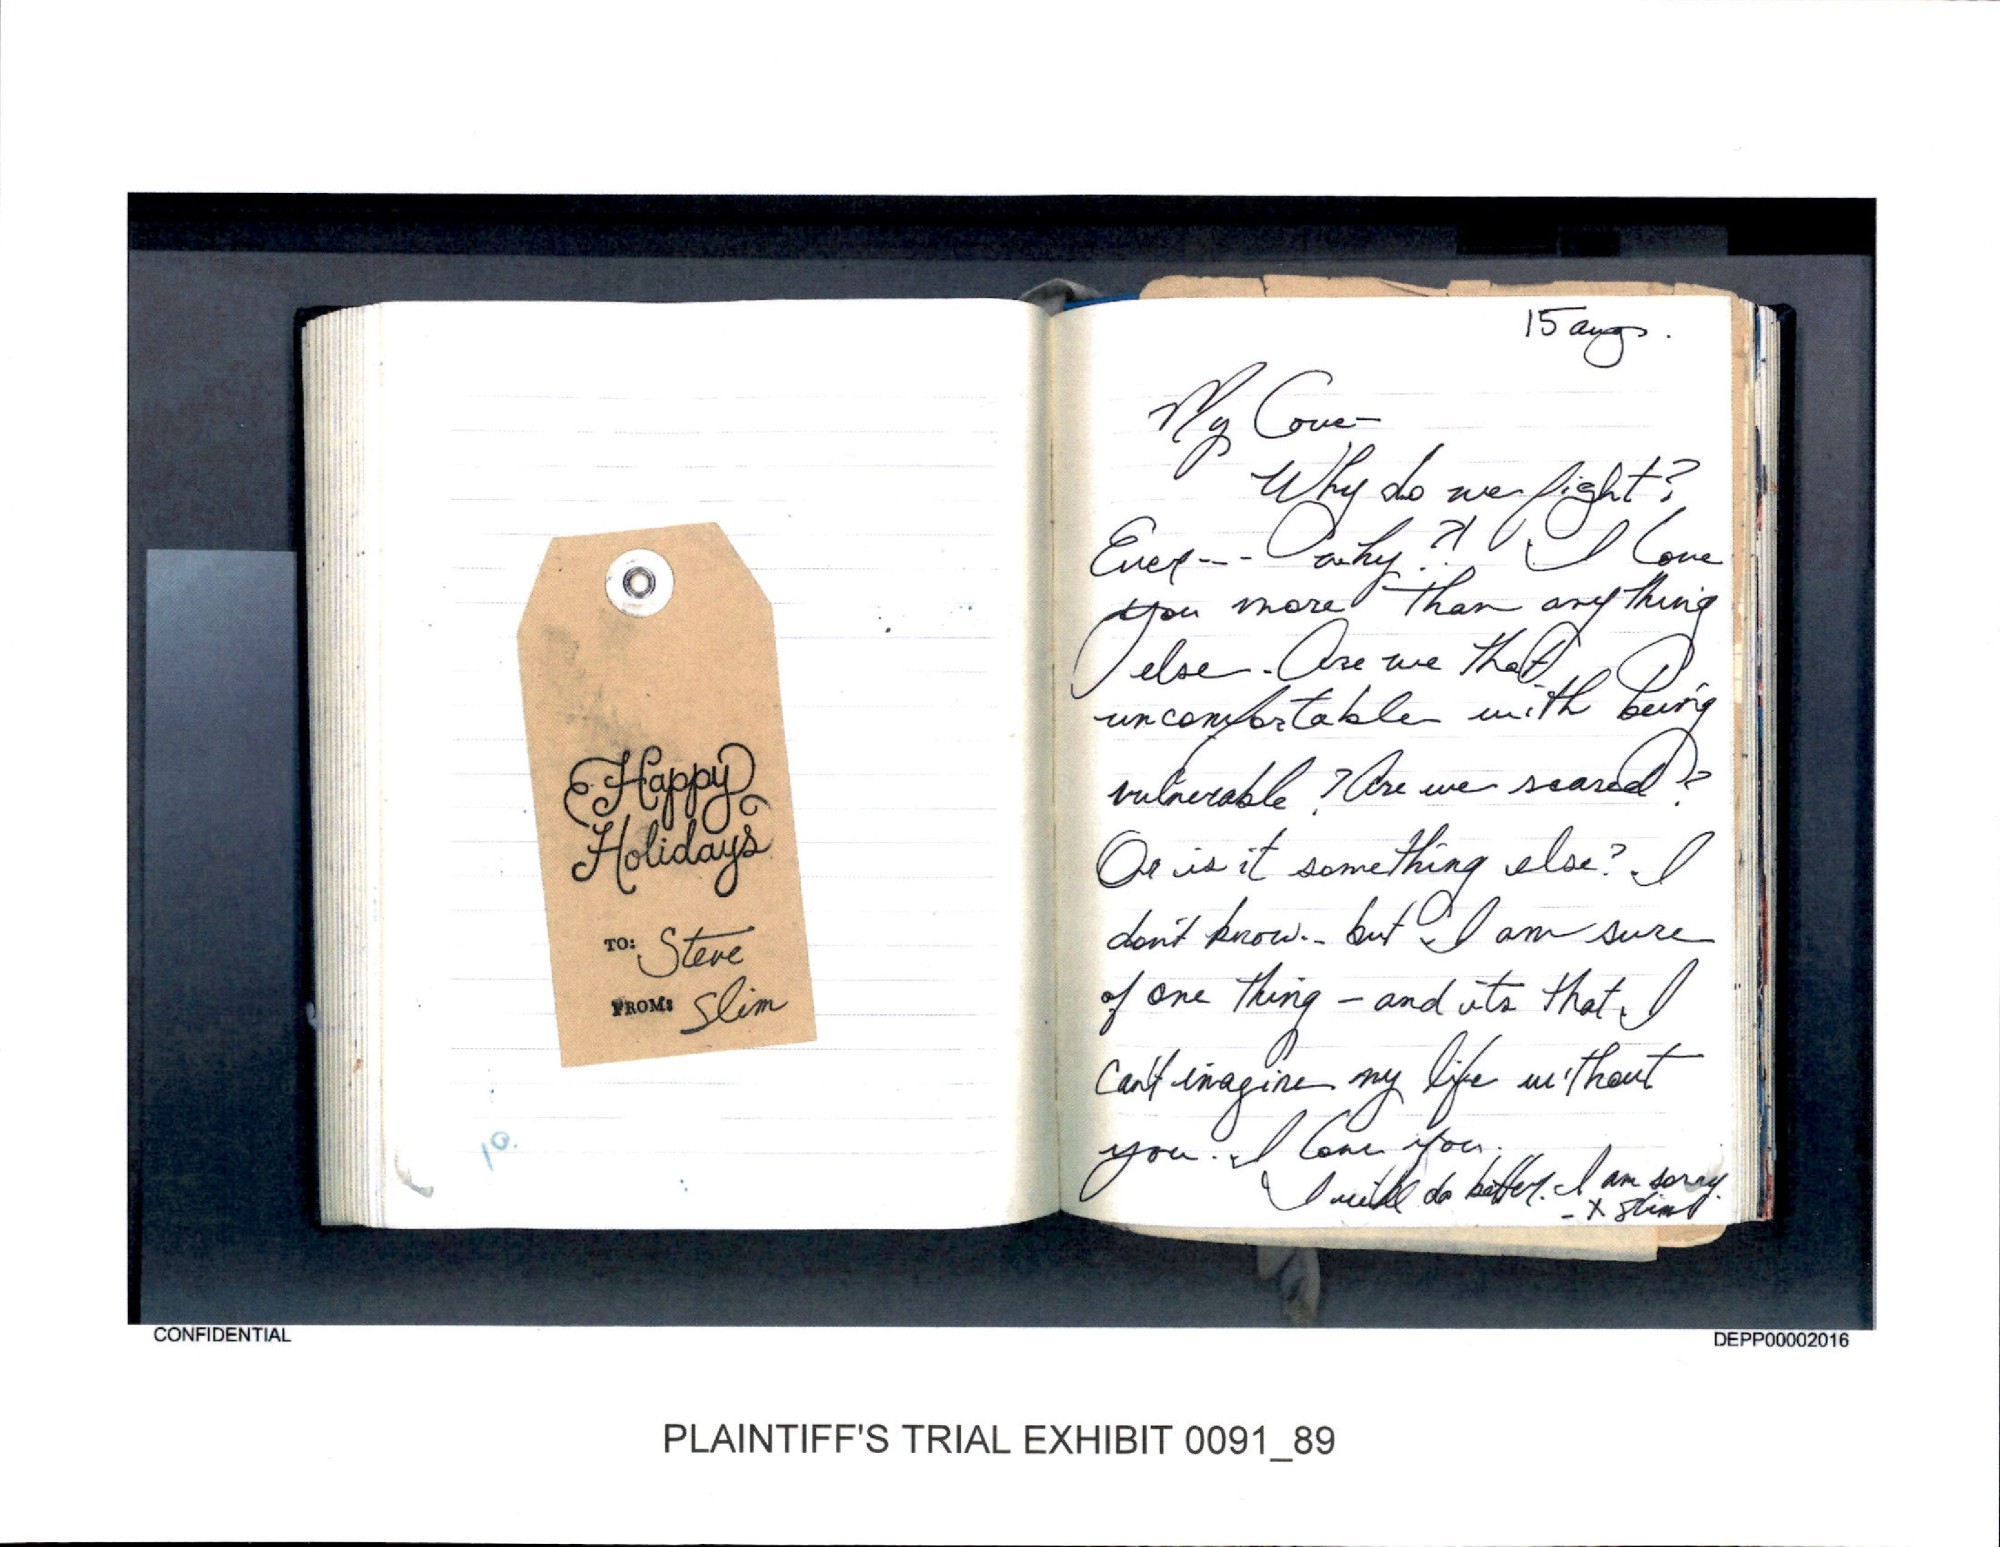 Happy
Holidays
TO: Steve
FROM: Slim
10.
15 aug.
My Love–
Why do we fight?
Ever--- why?! I love
you more than anything
else. Are we that
uncomfortable with being
vulnerable? Are we scared?
Or is it something else? I
don't know.. but I am sure
of one thing – and its that I
can't imagine my life without
you. I love you.
I will do better. I am sorry.
– x Slim
CONFIDENTIAL
DEPP00002016
PLAINTIFF'S TRIAL EXHIBIT 0091_89